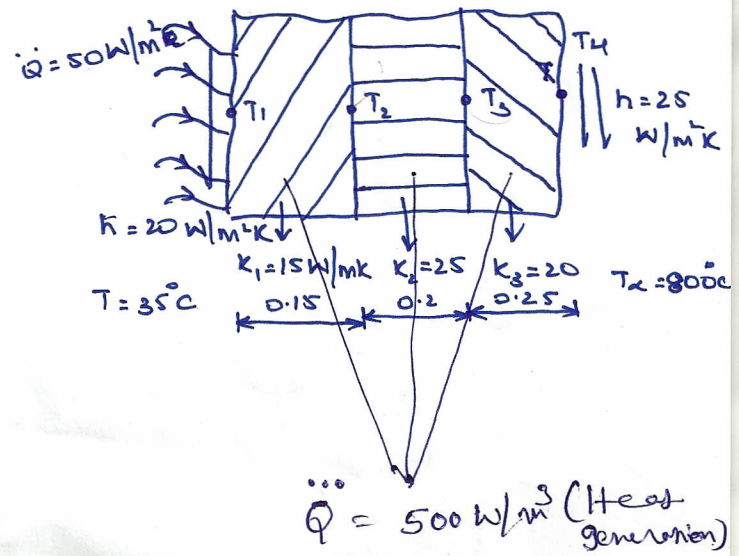 Q̈ = 50 W/m²
T4
T1
T2
T3
h = 25
W/m²K
h = 20 W/m²K
K₁ = 15 W/mk K₂ = 25 K₃ = 20
T = 35°C
0.15 0.2 0.25
Tα = 800°C
Q⃛ = 500 W/m³ (Heat
generation)